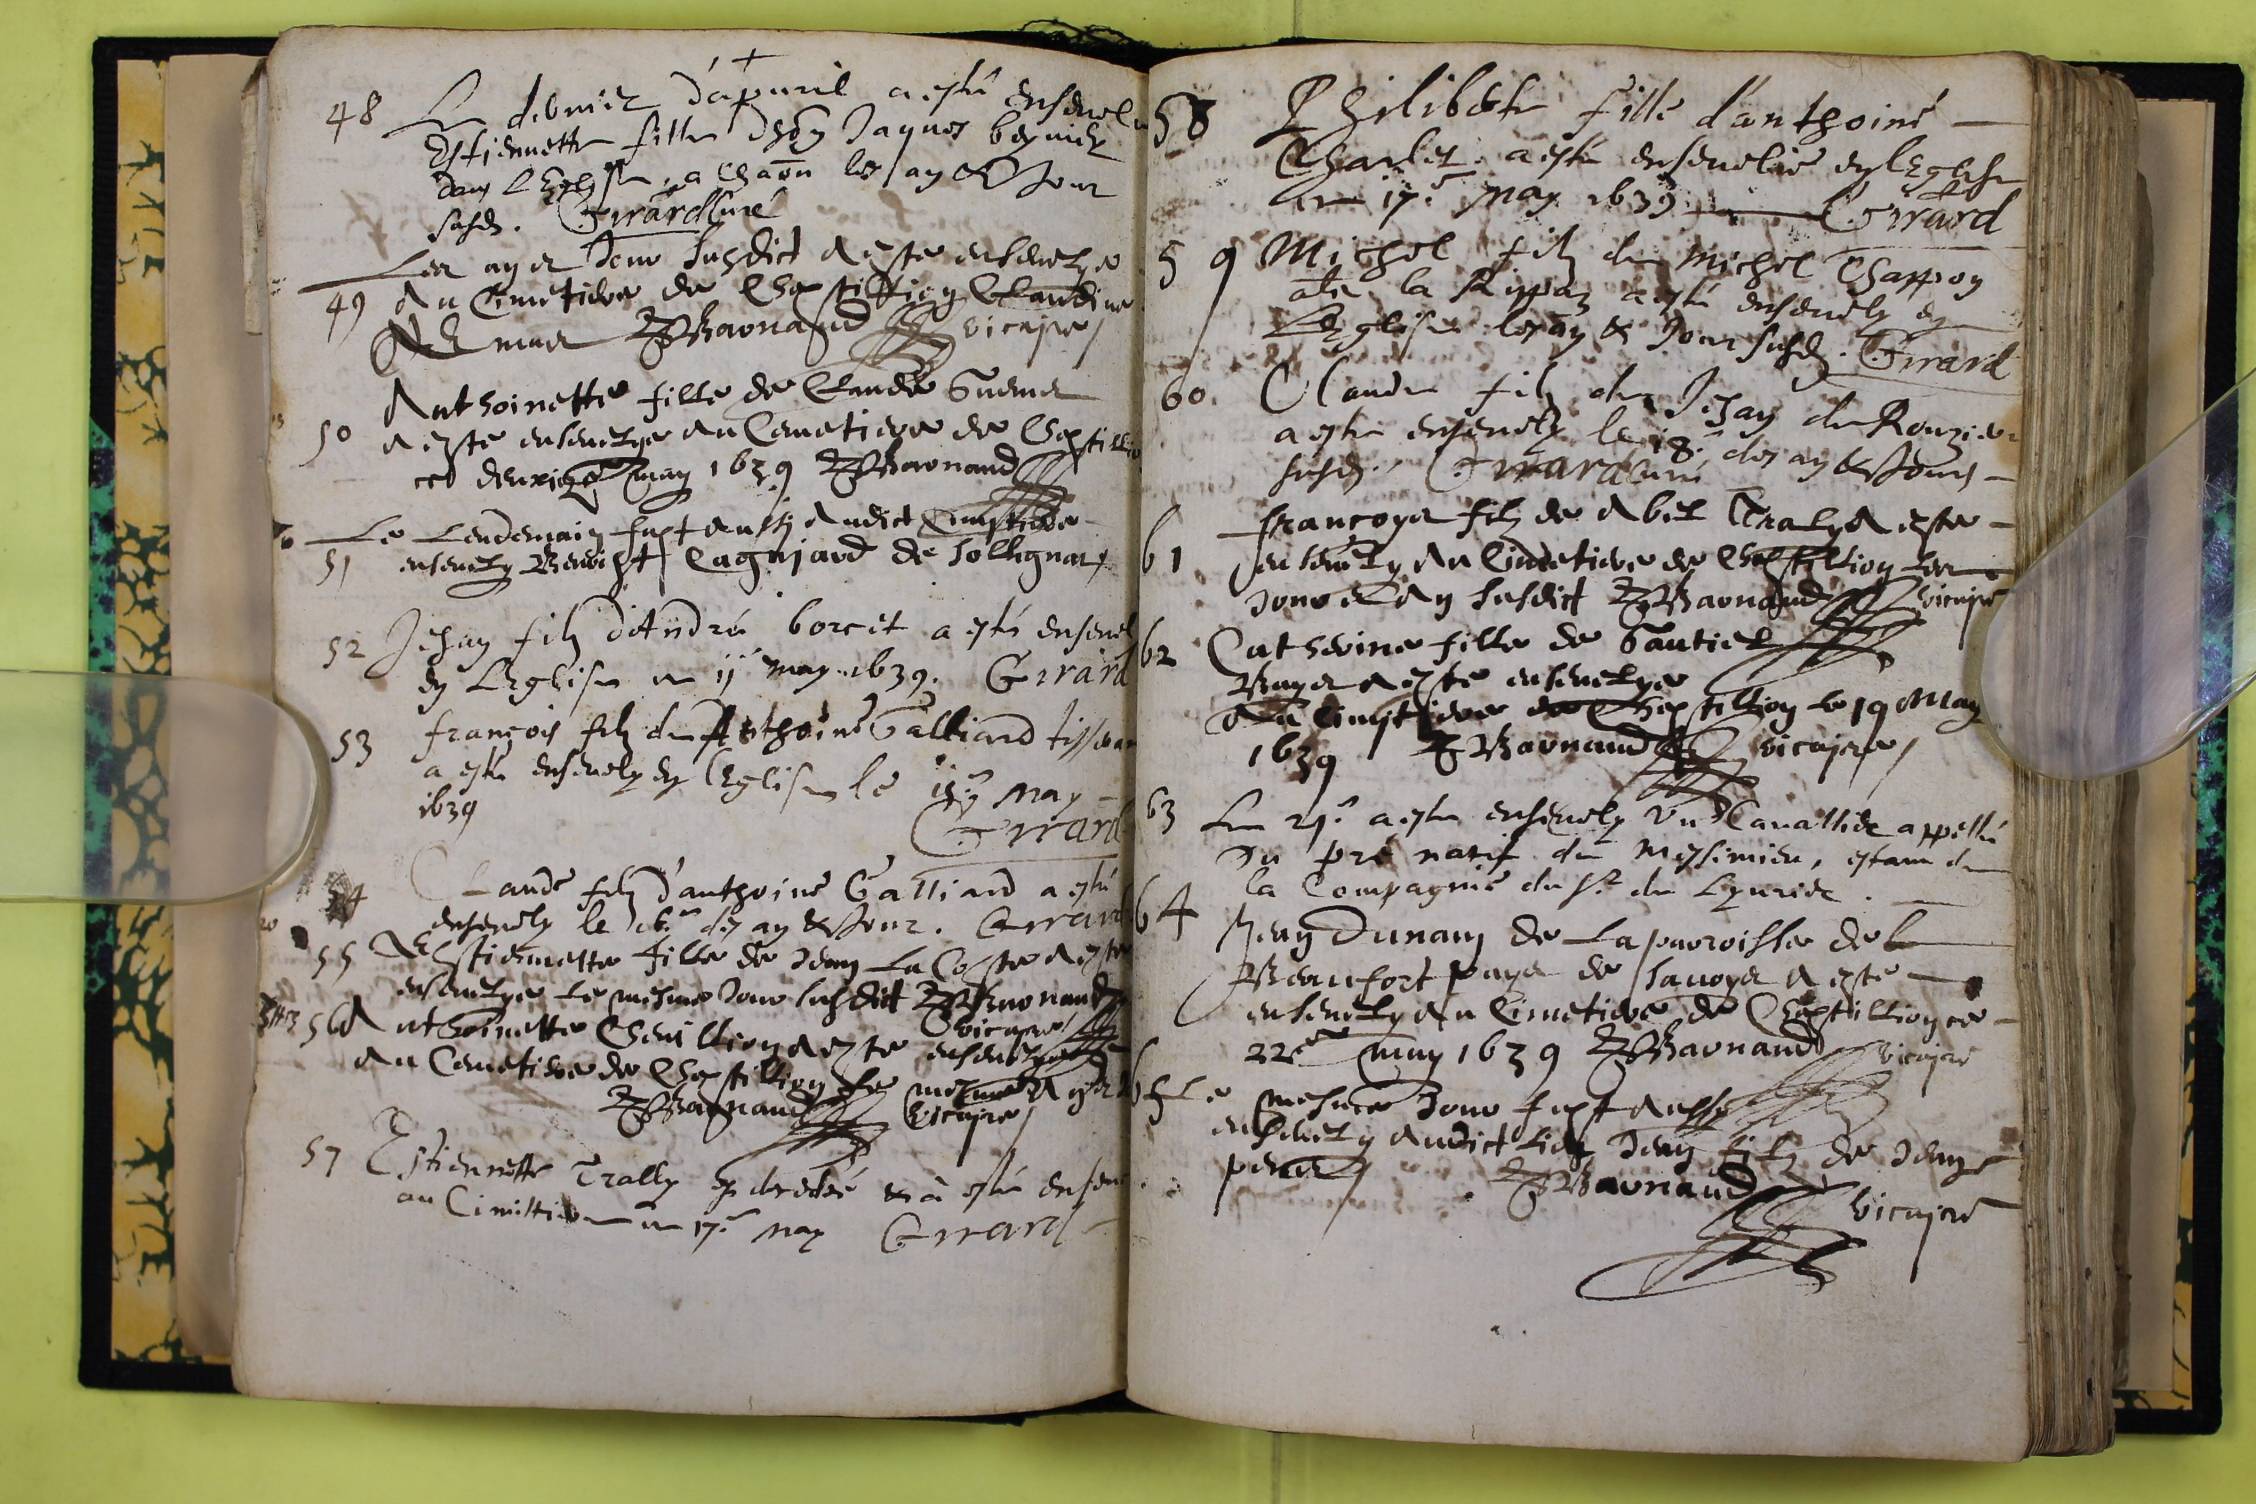 48 Le dernier d'apvril a esté ensevel
Estiennette fille d Jaques bernier
dans L'Eglise a les an & Jour
susd. Girard Curé
Les an et Jour susdict A este ensevelye
49 Au Cimetiere de Chastillion Claudine
Baronand vicaire
Anthoinette fille de Claude
50 A este ensevelye Au Cemetiere de Chastillion
ce deuxie may 1639 Baronand
Le Lendemain fust Aussy Audict Cimetiere
51 ensevely Benoist Cagniard de Sollignat
52 Jehan filz d'André borcet a esté ensevel
en L'Eglise ce 11 may 1639. Girard
53 françois filz de Anthoine Galliard tisseran
a esté ensevely en L'Eglise le 15 may
1639
Girard
54 Claude filz d'anthoine Galliard a esté
ensevely le 16 des an & Jour. Girard
55 Estiennette fille de Jean La Coste A este
ensevelye Le mesme Jour susdict Baronand
vicaire
56 Anthoinette A este ensevelye
Au Cemetiere de Chastillion Le mesme
Baronand vicaire
57 Estiennette Trally a esté ensev
au Cimittiere ce 17e may Girard
58 Philiberte fille d'anthoine
Charlet a esté ensevelie en L'Eglise
ce 17e may 1639 Girard
59 Michel filz de Michel Chappon
a esté ensevely en
L'Eglise les an & Jour susd. Girard
60. Claude filz de Jehan du Rouzier
a esté ensevely le 18e des an & Jours
susd. Girard Curé
françoys filz de Abel Traly A este
61 ensevely Au Cimetiere de Chastillion Les
Jour et An susdict Baronand vicaire
62 Catherine fille de Gautier
A este ensevelye
Au Cimetiere de Chastillion le 19 May
1639 Baronand vicaire
63 Le 21e a esté ensevely Un Cavallier appellé
Du pré natif de Messimieu, estant de
la Compagnie du Sr de
64 Jean Dunant de La parroisse de
Beaufort pays de Savoye A este
ensevely Au Cimetiere de Chastillion ce
22e may 1639 Baronand vicaire
65 Le mesme Jour fust Aussy
ensevely Audict Lieu Jean filz de Jean
Baronand
vicaire